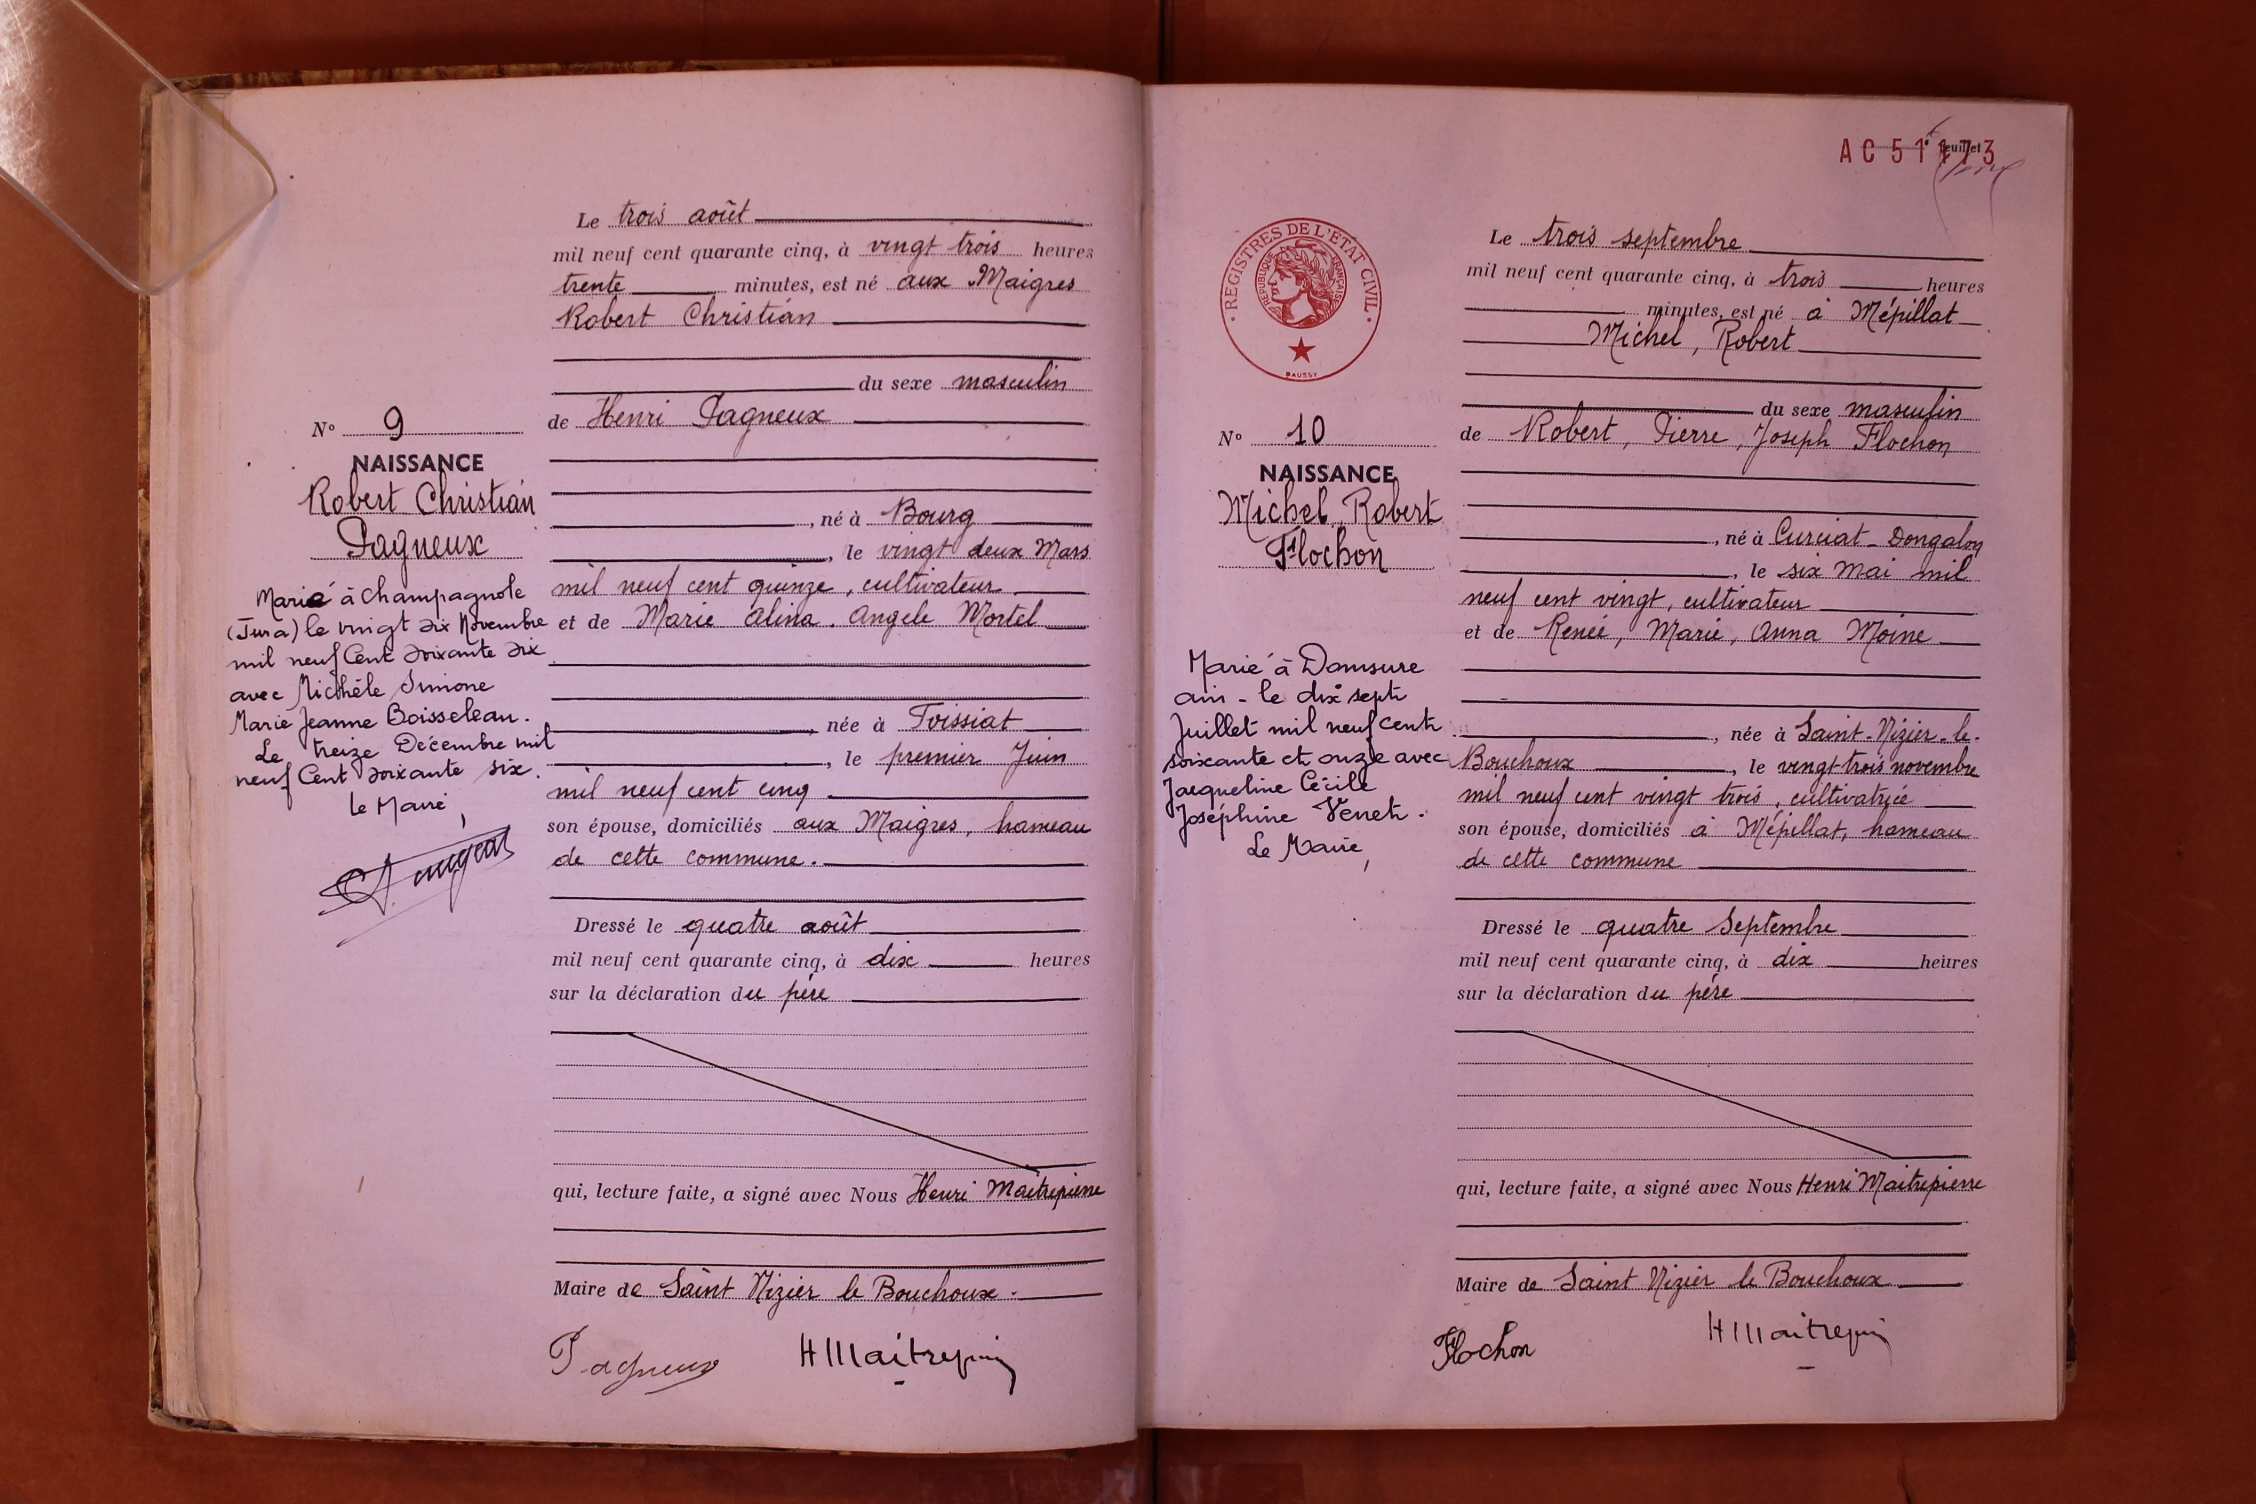 Le trois août
mil neuf cent quarante cinq, à vingt trois heures
trente minutes, est né aux Maigres
Robert Christian
du sexe masculin
N° 9
de Henri Pagneux
NAISSANCE
Robert Christian
Pagneux
, né à Bourg
, le vingt deux Mars
mil neuf cent quinze, cultivateur
et de Marie Alina. Angele Mortel
Marié à Champagnole
(Jura) le vingt six Novembre
mil neuf Cent soixante six
avec Michèle Simone
Marie Jeanne Boisseleau.
Le treize Décembre mil
neuf Cent soixante six.
Le Maire,
née à Foissiat
, le premier Juin
mil neuf cent cinq
son épouse, domiciliés aux Maigres, hameau
de cette commune.
Dressé le quatre août
mil neuf cent quarante cinq, à dix heures
sur la déclaration du père
qui, lecture faite, a signé avec Nous Henri Maitrepierre
Maire de Saint Nizier le Bouchoux.
Pagneux
HMaitrepierre
AC 51173
feuillet
REGISTRES DE L'ETAT CIVIL
REPUBLIQUE FRANÇAISE
DAUSSY
Le trois septembre
mil neuf cent quarante cinq, à trois heures
minutes, est né à Mépillat
Michel, Robert
du sexe masculin
N° 10
de Robert, Pierre, Joseph Flochon
NAISSANCE
Michel Robert
Flochon
, né à Curciat-Dongalon
, le six Mai mil
neuf cent vingt, cultivateur
et de Renée, Marie, Anna Moine
Marié à Domsure
ain - le dix sept
Juillet mil neuf cent
soixante et onze avec
Jacqueline Cécile
Joséphine Venet.
Le Maire,
, née à Saint-Nizier-le-
Bouchoux, le vingt trois novembre
mil neuf cent vingt trois, cultivatrice
son épouse, domiciliés à Mépillat, hameau
de cette commune
Dressé le quatre Septembre
mil neuf cent quarante cinq, à dix heures
sur la déclaration du père
qui, lecture faite, a signé avec Nous Henri Maitrepierre
Maire de Saint Nizier le Bouchoux
Flochon
HMaitrepierre